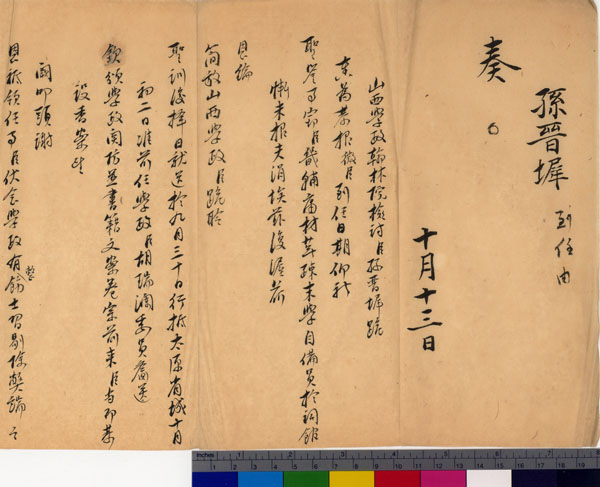 孫晉墀 到任由
奏
十月十三日
山西學政翰林院檢討臣孫晉墀跪
奏為恭報微臣到任日期仰祈
聖鑒事竊臣畿輔庸材茸疎末學自備員於詞館
慚未報夫涓埃茲復渥荷
恩綸
簡放山西學政臣跪聆
聖訓後擇日就道於九月三十日行抵太原省城十月
初二日准前任學政臣胡瑞瀾委員齎送
欽頒學政關防並書籍文案卷宗前來臣當即恭
設香案望
闕叩頭謝
恩祗領任事臣伏念學政有整飭士習剔除弊端之